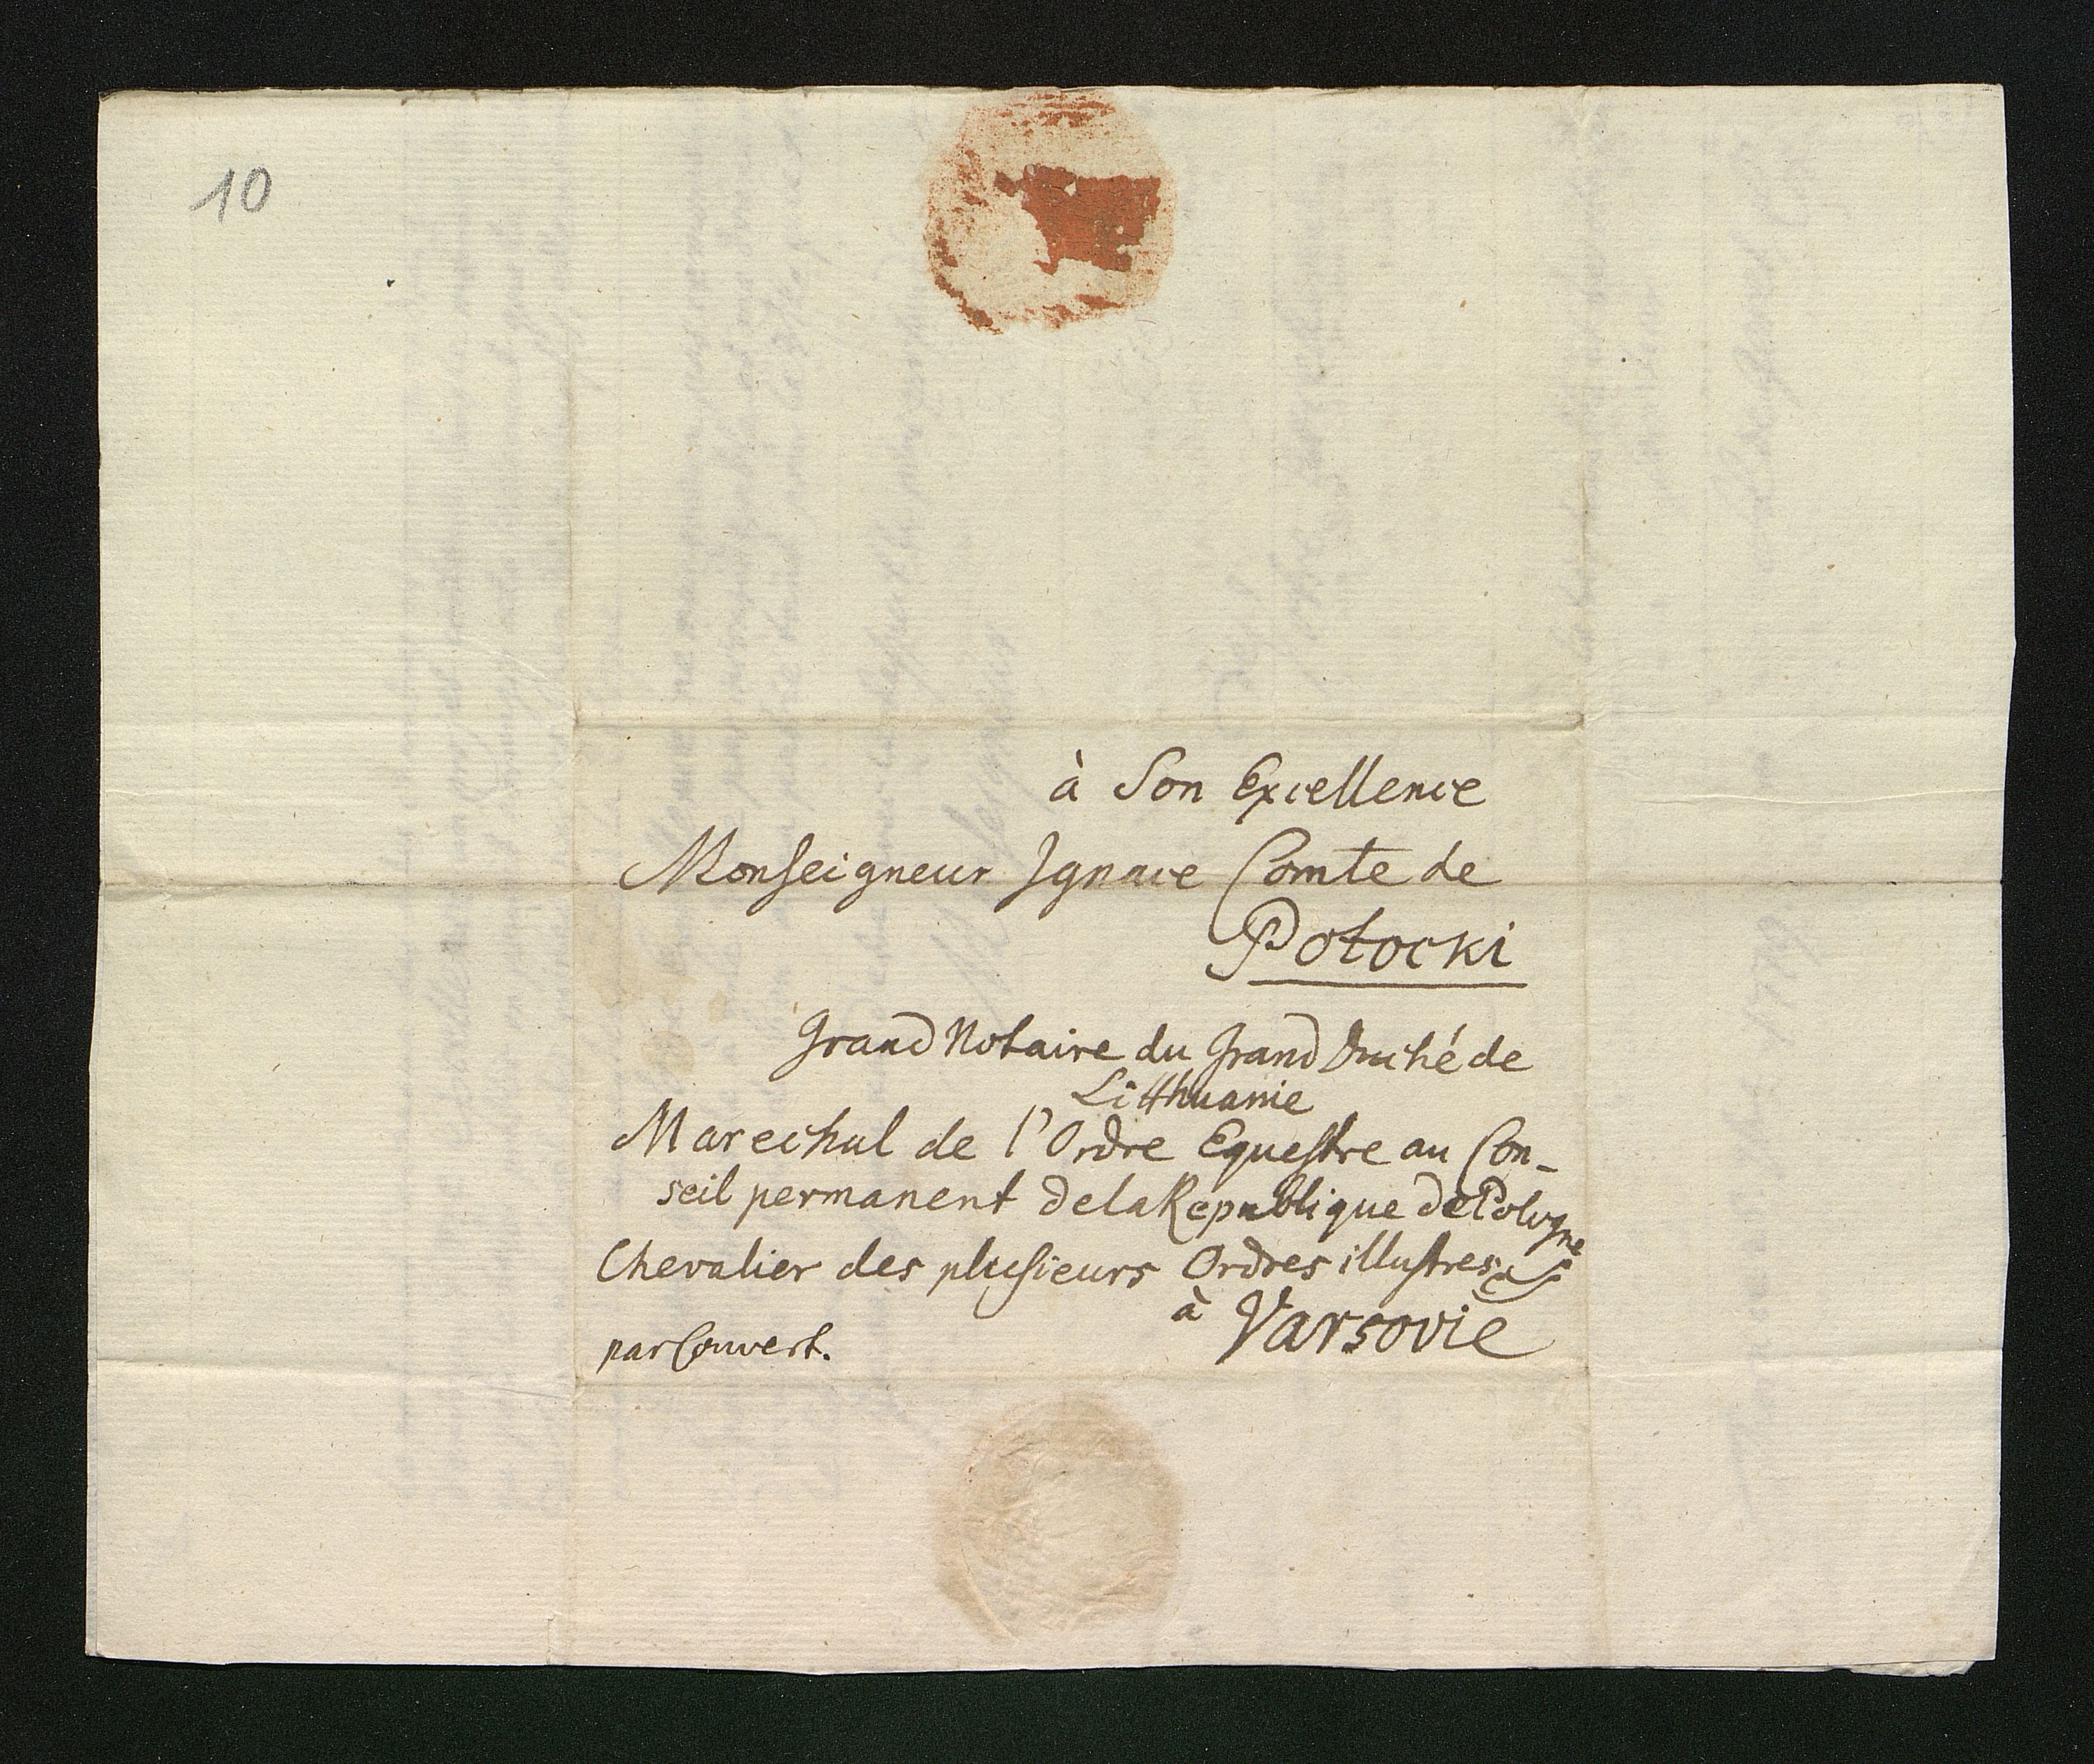 10
à Son Excellence
Monseigneur Ignace Comte de
Potocki
Grand Notaire du Grand Duché de
Litthuanie
Marechal de l'Ordre Equestre au Con-
seil permanent de la Republique de Pologne
Chevalier des plusieurs Ordres illustres
à Varsovie
par Couvert.